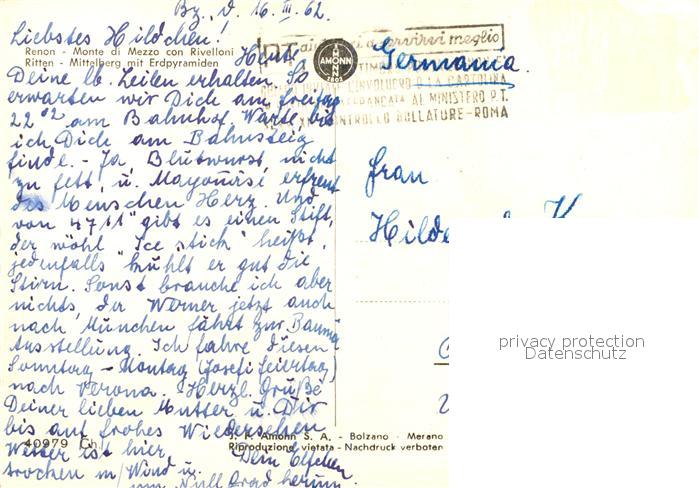 Bz., d. 16. III. 62.
Liebstes Hildchen!
Renon - Monte di Mezzo con Rivelloni
Ritten - Mittelberg mit Erdpyramiden
Heut
Deine lb. Zeilen erhalten. So
erwarten wir Dich am Freitag
22 02 am Bahnhof. Warte, bis
ich Dich am Bahnsteig
finde. - Ja, Blutwurst, nicht
zu fett, u. Mayonäse erfreut
des Menschen Herz. Und
von "4711" gibt es einen Stift,
der wohl "Ice stick" heißt,
jedenfalls kühlt er gut die
Stirn. Sonst brauche ich aber
nichts, da Werner jetzt auch
nach München fährt zur Bauma
Ausstellung. Ich fahre diesen
Sonntag - Montag (Josefi Feiertag)
nach Verona. Herzl. Grüße
Deiner lieben Mutter u. Dir
bis auf frohes Wiedersehen
Wetter ist hier Dein Elfchen
trocken m/Wind u.
um Null Grad herum.
40979
AMONN
servirvi meglio
L'INVOLUCRO O LA CARTOLINA
AL MINISTERO P.T.
CONTROLLO BOLLATURE-ROMA
Germania.
Frau
J. F. Amonn S. A. - Bolzano - Merano
Riproduzione vietata - Nachdruck verboten
privacy protection
Datenschutz